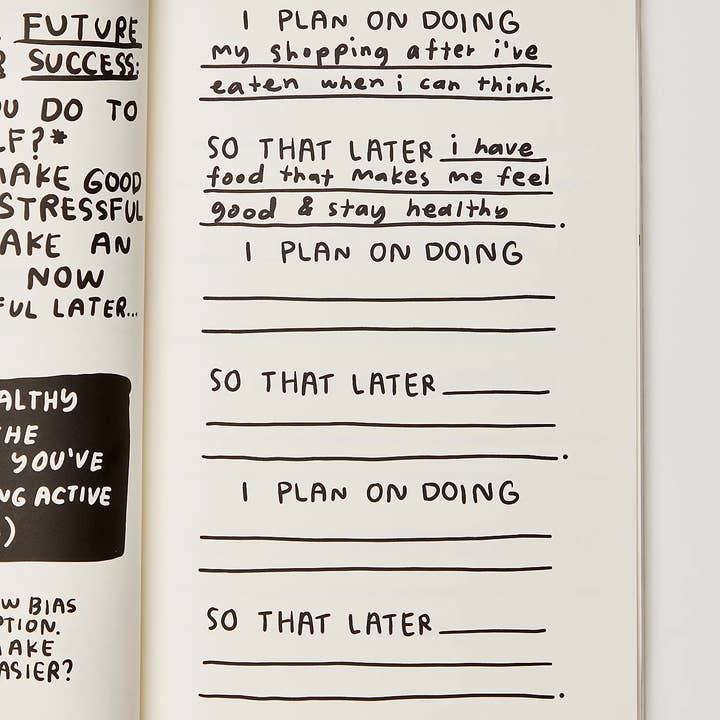 FUTURE
SUCCESS:
U DO TO
LF?*
MAKE GOOD
STRESSFUL
AKE AN
NOW
FUL LATER...
ALTHY
HE
YOU'VE
NG ACTIVE
)
W BIAS
PTION.
MAKE
ASIER?
I PLAN ON DOING
my shopping after i've
eaten when i can think.
SO THAT LATER i have
food that makes me feel
good & stay healthy.
I PLAN ON DOING
SO THAT LATER
.
I PLAN ON DOING
SO THAT LATER
.